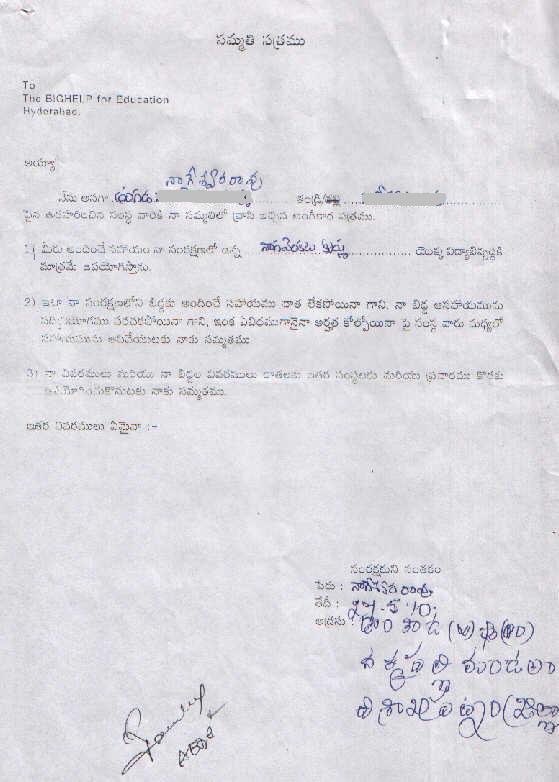 సమ్మతి పత్రము
To
The BIGHELP for Education
Hyderabad.
అయ్యా
నాగేశ్వరరావు
నేను అనగా తండ్రి/
పైన ఉదహరించిన సంస్థ వారికి నా సమ్మతిలో వ్రాసి ఇచ్చిన అంగీకార పత్రము.
1) మీరు అందించే సహాయం నా సంరక్షణలో ఉన్న యొక్క విద్యాభివృద్ధికి
మాత్రమే ఉపయోగిస్తాను.
2) ఇలా నా సంరక్షణలోని బిడ్డకు అందించే సహాయము దాత లేకపోయినా గాని, నా బిడ్డ ఆసహాయమును
సద్వినియోగము పరచకపోయినా గాని, ఇంక ఏవిధముగానైనా అర్హత కోల్పోయినా పై సంస్థ వారు మధ్యలో
సహాయమును ఆపివేయుటకు నాకు సమ్మతము
3) నా వివరములు మరియు నా బిడ్డల వివరములు దాతలకు ఇతర సంస్థలకు మరియు ప్రచారము కొరకు
ఉపయోగించుకొనుటకు నాకు సమ్మతము.
ఇతర వివరములు ఏమైనా :-
సంరక్షకుని సంతకం
పేరు : నాగేశ్వర రావు
తేదీ :
అడ్రసు :
మండలం